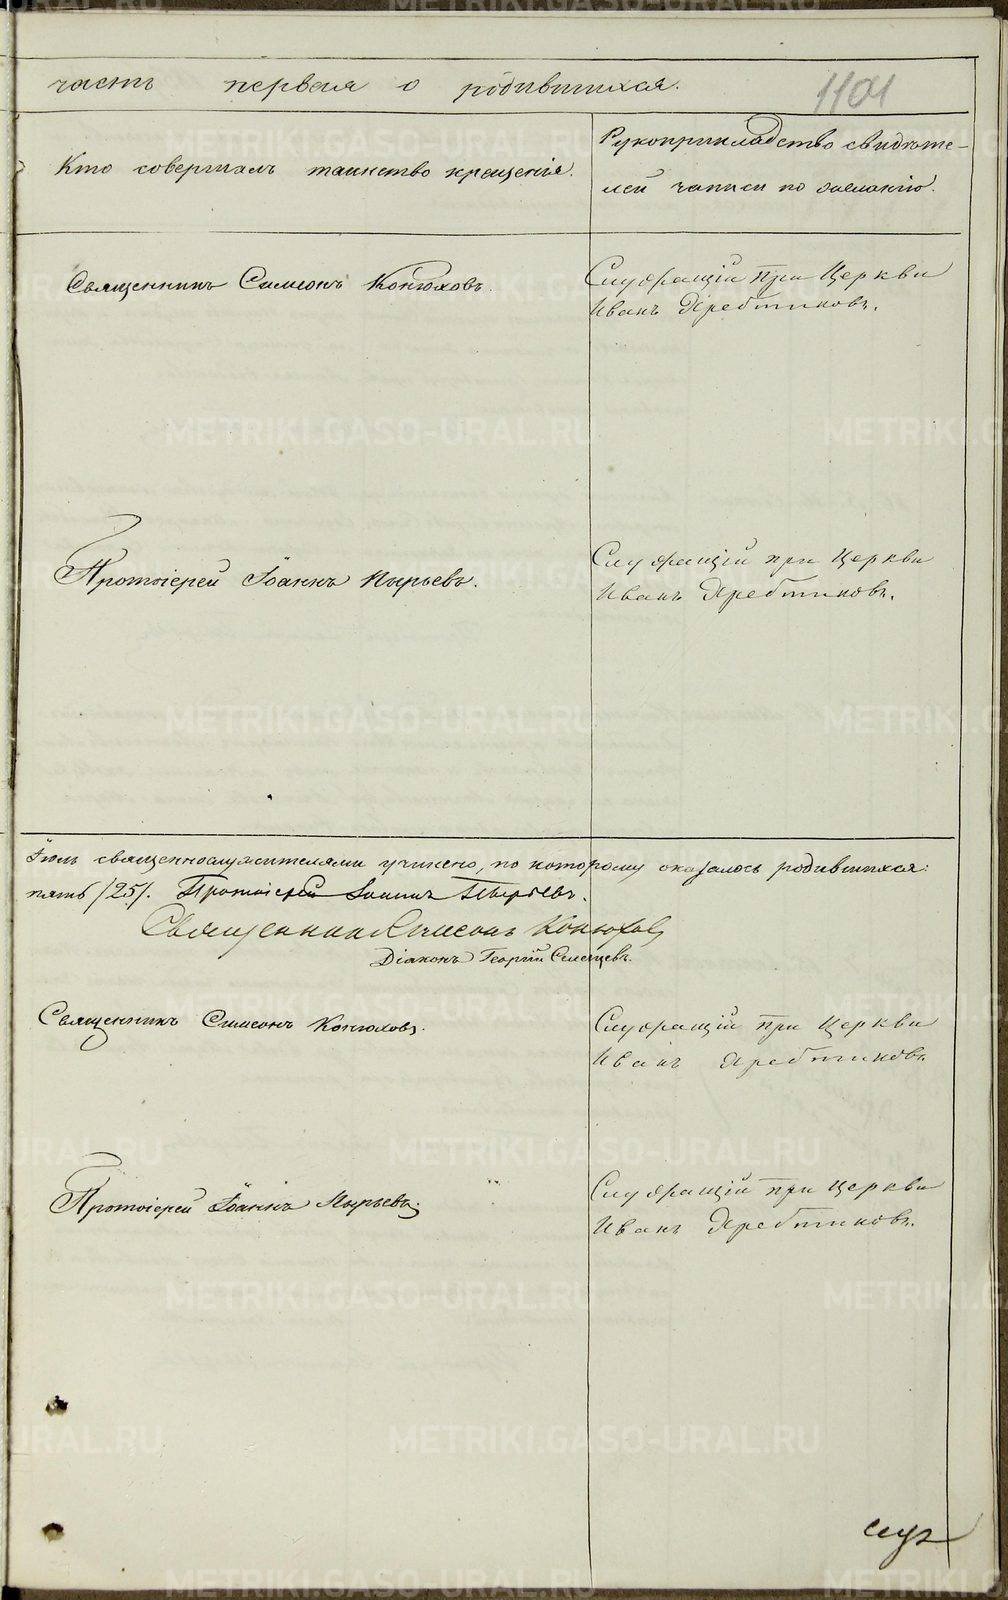 METRIKI.GASO-URAL.RU
часть первая о родившихся.
1101
Кто совершалъ таинство крещенія.
Рукоприкладство свидѣте-
лей записи по желанію.
Священникъ Симеонъ Конюховъ.
Служащій при Церкви
Иванъ Жребтиковъ.
Протоіерей Іоаннъ Пырьевъ.
Служащій при Церкви
Иванъ Жребтиковъ.
Іюль священнослужителями учинено, по которому оказалось родившихся:
пять /25/. Протоіерей Іоаннъ Пырьевъ.
Священникъ Симеонъ Конюховъ
Діаконъ Георгій
Священникъ Симеонъ Конюховъ.
Служащій при Церкви
Иванъ Жребтиковъ
Протоіерей Іоаннъ Пырьевъ
Служащій при Церкви
Иванъ Жребтиковъ.